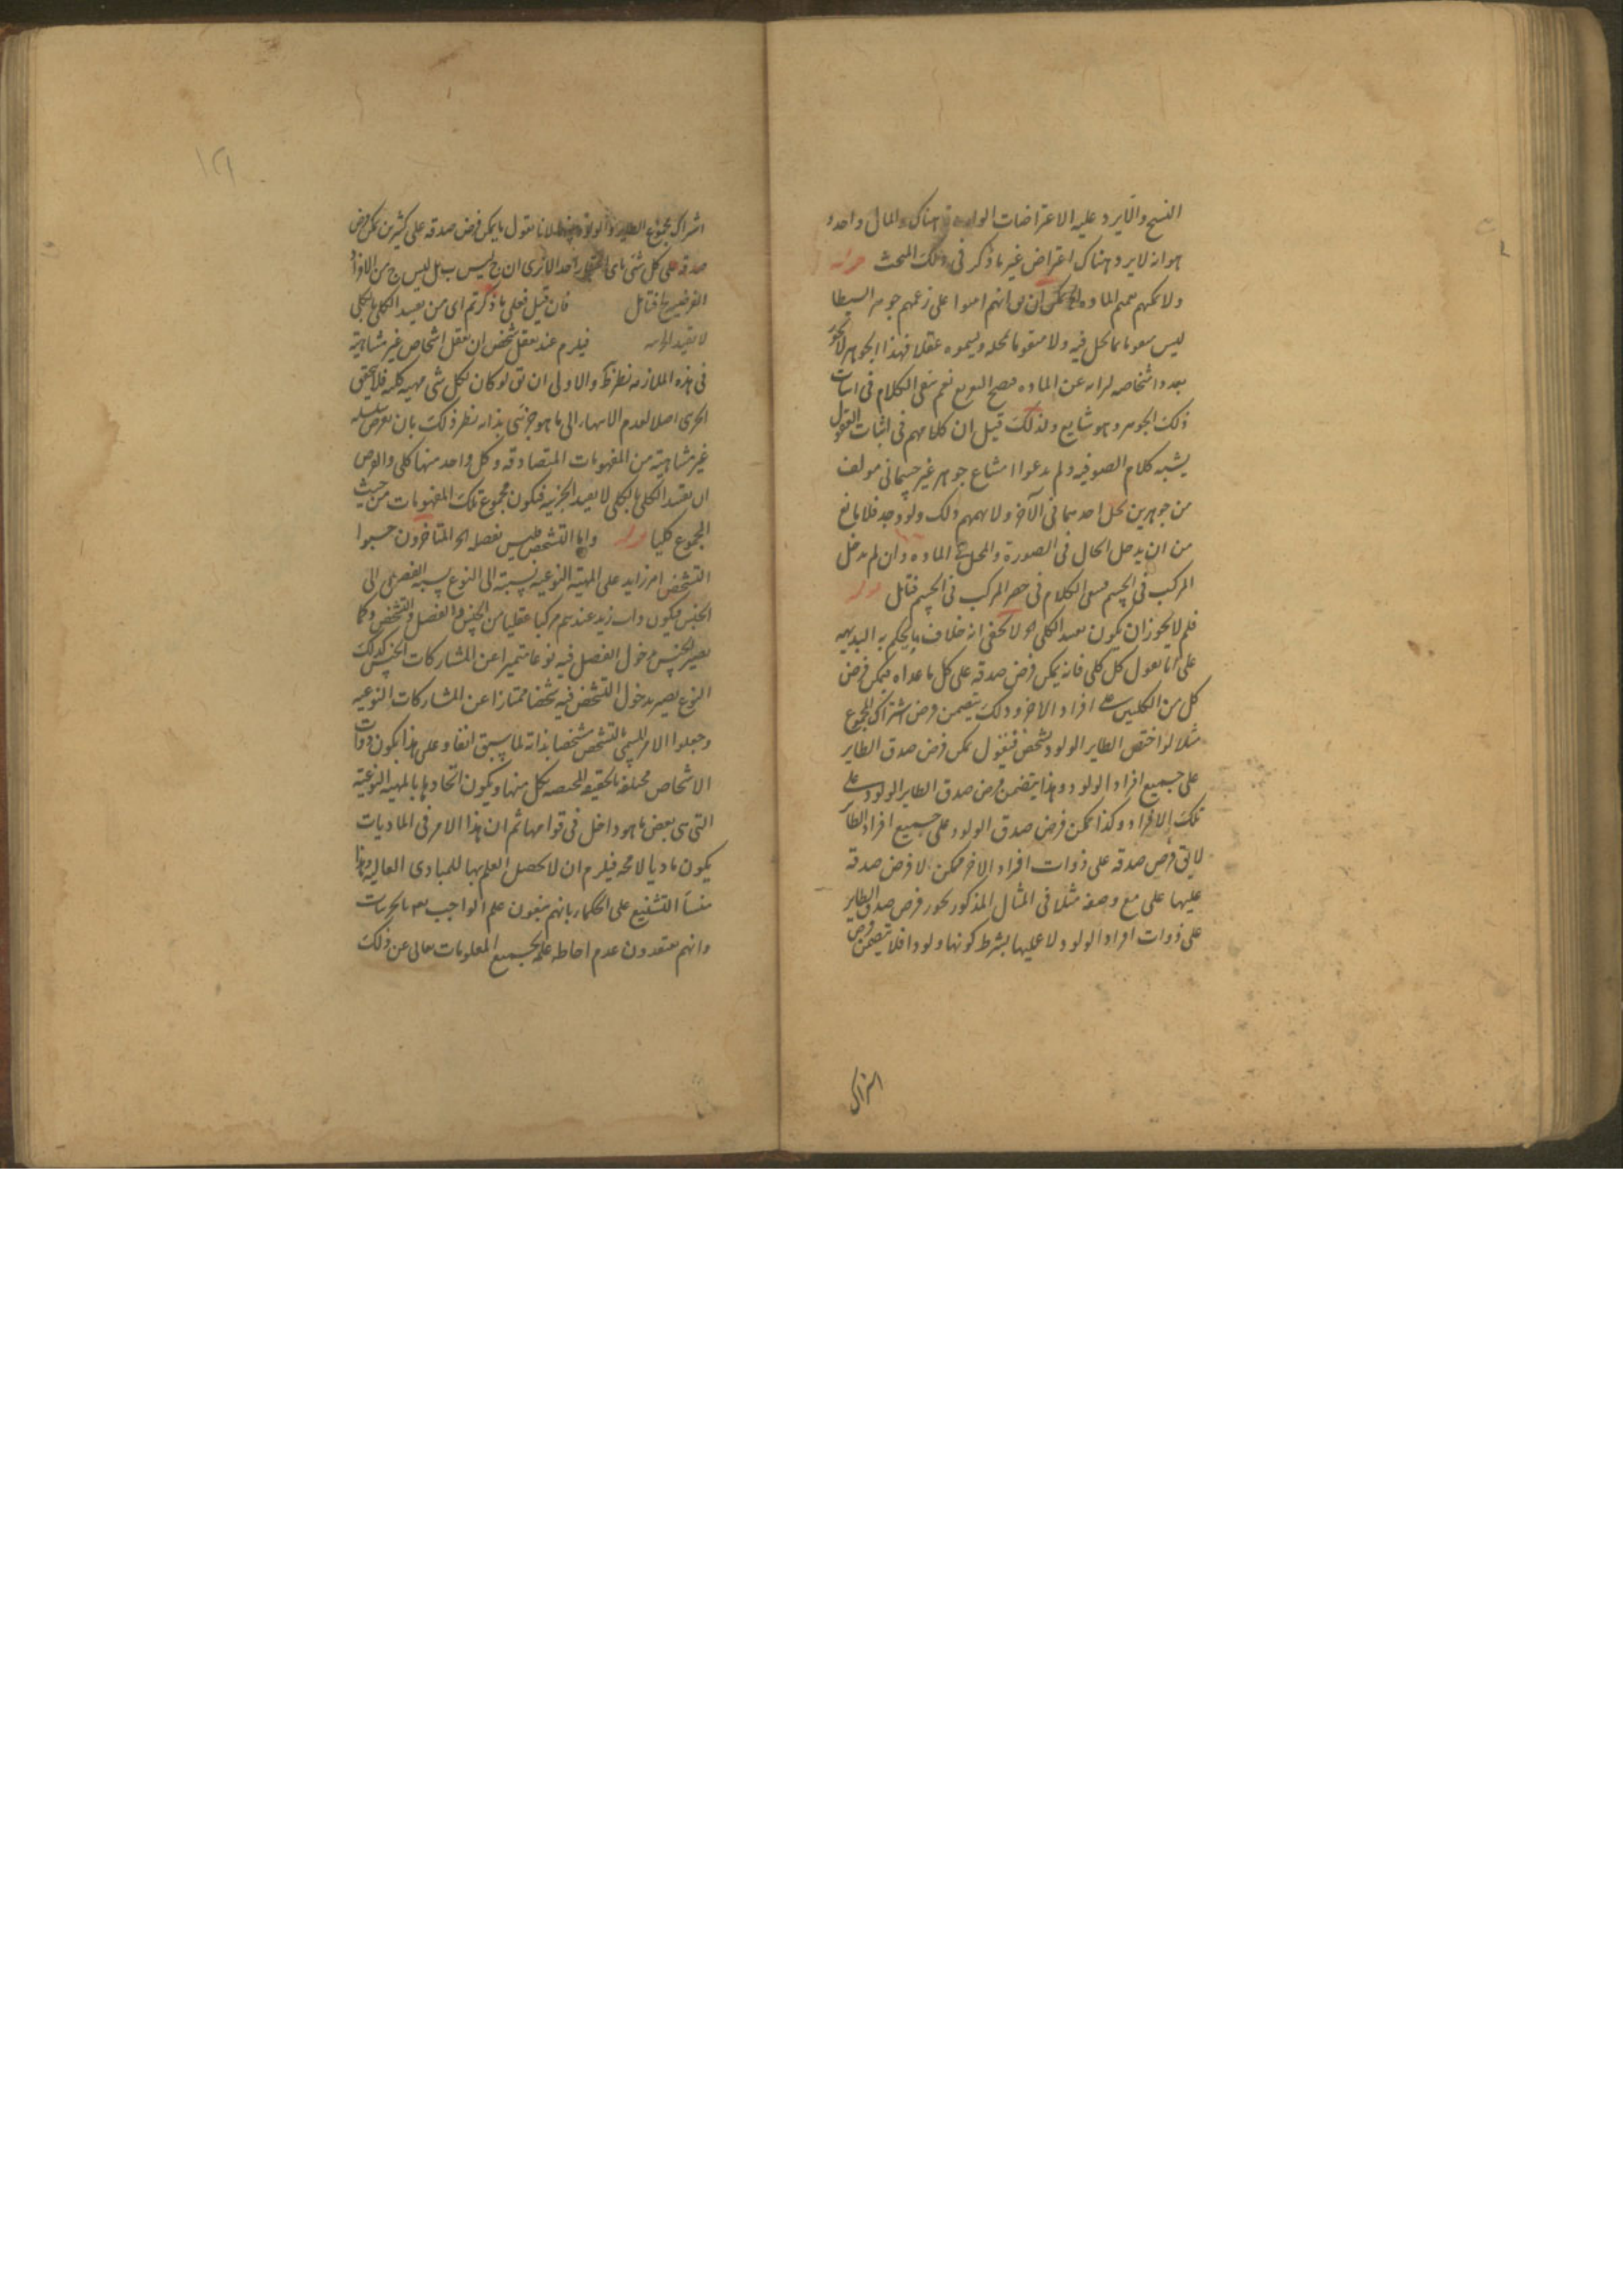 النسخ والا يرد عليه الاعتراضات الواردة هناك والمال واحد و
هو انه لا يرد هناك اعتراض غير ما ذكر فى ذلك المبحث
ولا يمكنهم تعميم الماده ان يق انهم على زعمهم جوهر السيطا
ليس متقوما بما يحل فيه ولا متقوما بمحله ويسموه عقلا فهذا الجوهر لا يجوز
تعدد اشخاصه عن الماده نعم بقى الكلام فى اثبات
ذلك الجوهر وهو شايع ولذلك قيل ان كلامهم فى اثبات العقول
يشبه كلام الصوفيه ولم يدعوا امتناع جوهر غير جسمانى مولف
من جوهرين يحل احدهما فى الآخر ولا يهمهم ذلك ولو وجد فلا مانع
من ان يدخل الحال فى الصورة والمحل فى الماده وان لم يدخل
المركب فى الجسم فبقى الكلام فى حصر المركب فى الجسم فتامل
فلم لا يجوز ان يكون تقييد الكلى لا يخفى انه خلاف ما يحكم به البديهه
على انا نقول كل كلى فانه يمكن فرض صدقه على كل ما عداه فيمكن فرض
كل من الكليين على افراد الاخر وذلك يتضمن فرض اشتراك المجموع
مثلا لو اختص الطاير الولود بشخص فنقول يمكن فرض صدق الطاير
على جميع افراد الولود وهذا يتضمن فرض صدق الطاير الولود على
تلك الافراد وكذا يمكن فرض صدق الولود على جميع افراد الطاير
لا يق فرض صدقه على ذوات افراد الاخر ممكن لا فرض صدقه
عليها على مع وصفه مثلا فى المثال المذكور يجوز فرض صدق الطاير
على ذوات افراد الولود لا عليها بشرط كونها ولودا فلا يتضمن فرض
اشتراك
اشتراك مجموع الطاير والولود لانا نقول ما يمكن فرض صدقه على كثيرين يمكن فرض
صدقه على كل شئ باى احد الا ترى ان ج ليس ب بل ليس ج من الافراد
الفرضيه ج فتامل فان قيل فعلى ما ذكرتم اى من تقييد الكلى بالكلى
لا يفيد الجزئيه فيلزم عند تعقل شخص ان تعقل اشخاص غير متناهية
فى هذه الملازمه نظر والاولى ان يق لو كان لكل شى مهيه كليه فلا يتحقق
الجزى اصلا لعدم الانتهاء الى ما هو جزئى بذاته نظر ذلك بان نفرض سلسله
غير متناهية من المفهومات المتصادقه وكل واحد منها كلى والفرض
ان تقييد الكلى بالكلى لا يفيد الجزئيه فيكون مجموع تلك المفهومات من حيث
المجموع كليا واما التشخص فليس بفصل المتاخرون حسبوا
التشخص امر زايد على المهية النوعيه نسبته الى النوع نسبة الفصل الى
الجنس فيكون ذات زيد عندهم مركبا عقليا من الجنس والفصل والتشخص وكما
يصير الجنس بدخول الفصل فيه نوعا متميزا عن المشاركات الجنس كذلك
النوع يصير بدخول التشخص فيه شخصا ممتازا عن المشاركات النوعيه
وجعلوا الامر المسمى بالتشخص متشخصا بذاته لما سبق انفا وعلى هذا يكون ذوات
الاشخاص مختلفه بالحقيقه المختصه بكل منها ويكون اتحادها بالمهية النوعيه
التى هى بعض ما هو داخل فى قوامها ثم ان هذا الامر فى الماديات
يكون ماديا لا محه فيلزم ان لا يحصل العلم بها للمبادى العاليه وهذا
منشأ التشنيع على الحكماء بانهم ينفون علم الواجب تعـ بالجزئيات
وانهم يعتقدون عدم احاطه علمه بجميع المعلومات تعالى عن ذلك